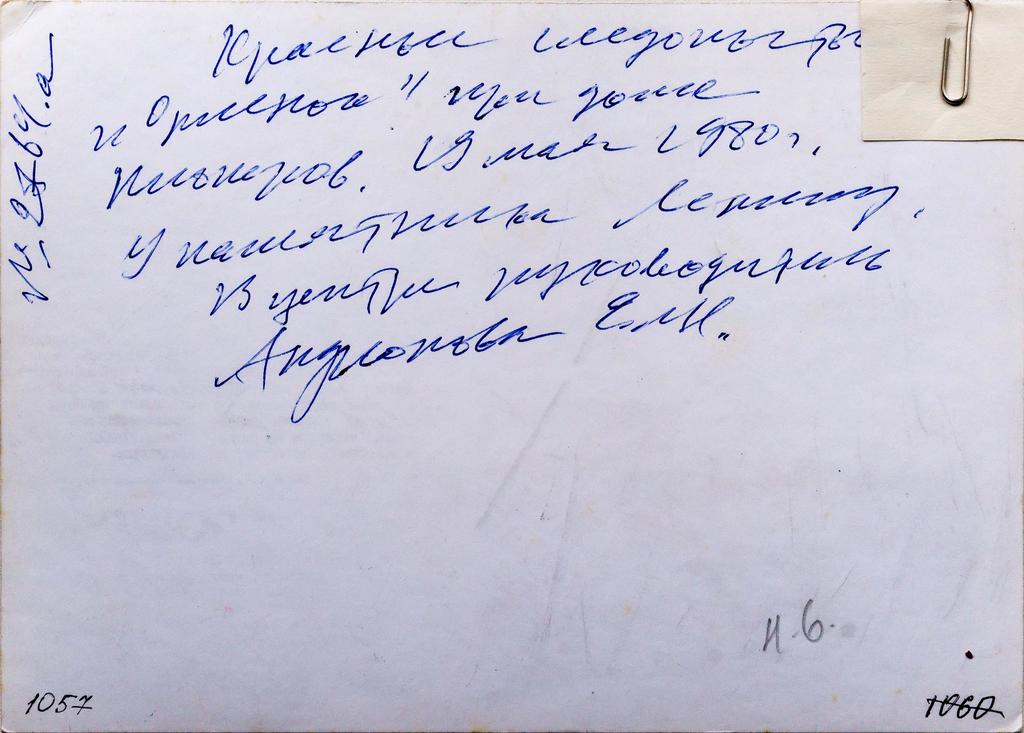 Красные следопыты
и "Орлёнка" при доме
Пионеров. 19 мая 1980 г.
У памятника Ленину.
В центре руководитель
Андронова Е.М.
№ 2764.а
н.6.
1057
1060